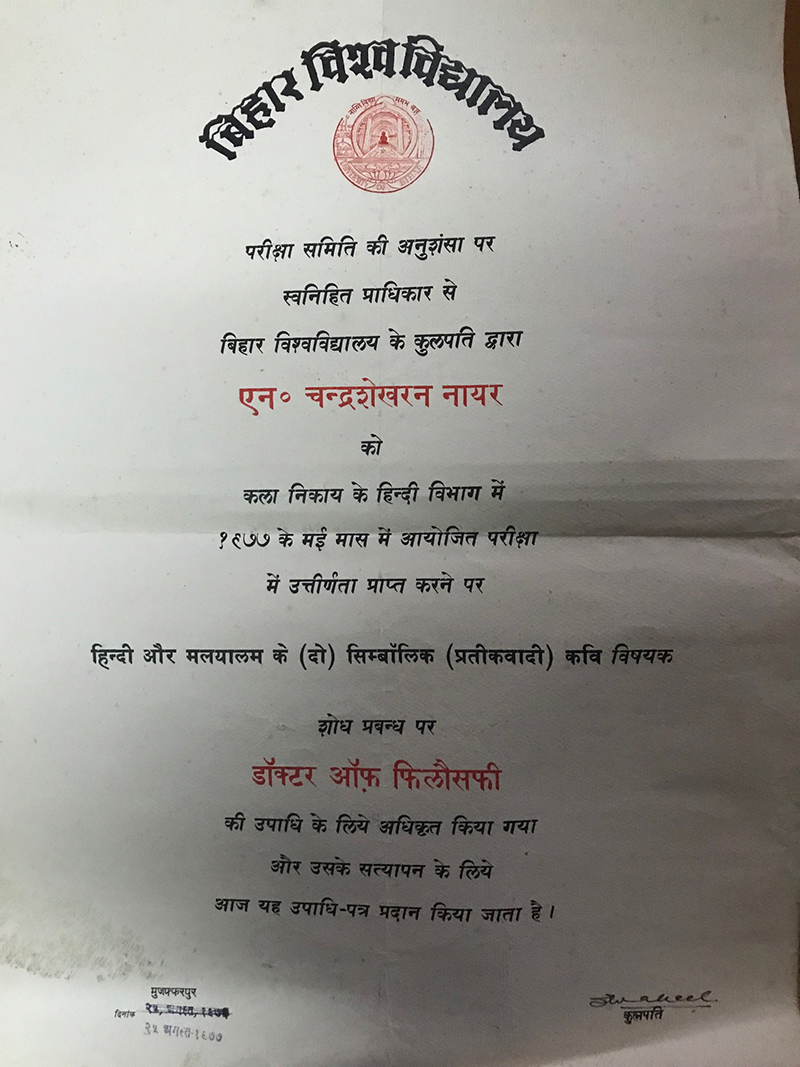 बिहार विश्वविद्यालय
परीक्षा समिति की अनुशंसा पर
स्वनिहित प्राधिकार से
बिहार विश्वविद्यालय के कुलपति द्वारा
एन० चन्द्रशेखरन नायर
को
कला निकाय के हिन्दी विभाग में
१९७७ के मई मास में आयोजित परीक्षा
में उत्तीर्णता प्राप्त करने पर
हिन्दी और मलयालम के (दो) सिम्बॉलिक (प्रतीकवादी) कवि विषयक
शोध प्रबन्ध पर
डॉक्टर ऑफ़ फिलौसफी
की उपाधि के लिये अधिकृत किया गया
और उसके सत्यापन के लिये
आज यह उपाधि-पत्र प्रदान किया जाता है।
मुजफ्फरपुर
दिनांक
२५ अगस्त १९७७
कुलपति